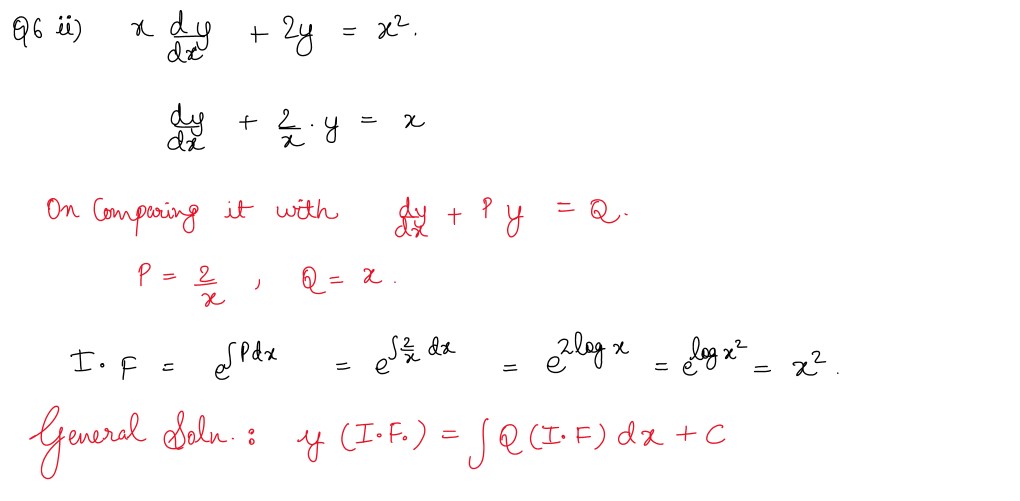 Q6 ii) x dy/dx + 2y = x².
dy/dx + 2/x . y = x
On Comparing it with dy/dx + P y = Q.
P = 2/x , Q = x .
I.F = e^∫Pdx = e^∫2/x dx = e^2log x = e^log x² = x² .
General Soln. : y (I.F.) = ∫Q (I.F) dx + C